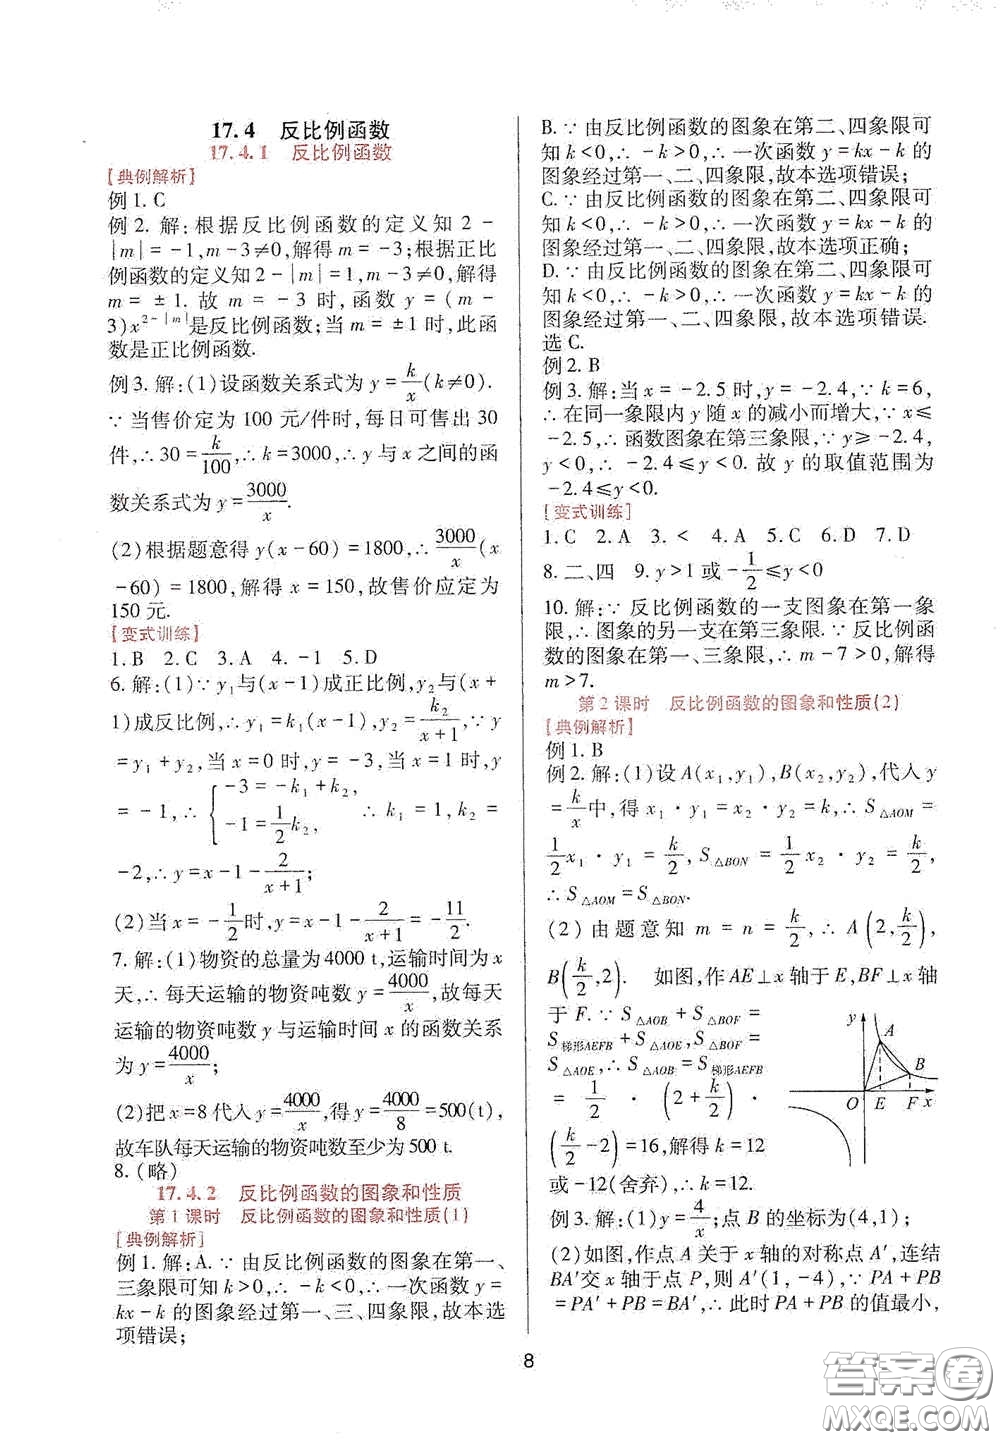 17.4 反比例函数
17.4.1 反比例函数
[典例解析]
例 1. C
例 2. 解:根据反比例函数的定义知 2-
|m|=-1,m-3≠0,解得 m=-3;根据正比
例函数的定义知 2-|m|=1,m-3≠0,解得
m=±1. 故 m=-3 时,函数 y=(m-
3)x^{2-|m|}是反比例函数;当 m=±1 时,此函
数是正比例函数.
例 3. 解:(1)设函数关系式为 y=k/x(k≠0).
∵当售价定为 100 元/件时,每日可售出 30
件,∴30=k/100,∴k=3000,∴y 与 x 之间的函
数关系式为 y=3000/x.
(2)根据题意得 y(x-60)=1800,∴3000/x(x
-60)=1800,解得 x=150,故售价应定为
150 元.
[变式训练]
1. B 2. C 3. A 4. -1 5. D
6. 解:(1)∵y₁与(x-1)成正比例,y₂与(x+
1)成反比例,∴y₁=k₁(x-1),y₂=k₂/(x+1),∵y
=y₁+y₂,当 x=0 时,y=-3,当 x=1 时,y
=-1,∴{-3=-k₁+k₂, -1=1/2k₂, ∴k₁=1,k₂=
-2,∴y=x-1-2/(x+1);
(2)当 x=-1/2时,y=x-1-2/(x+1)=-11/2.
7. 解:(1)物资的总量为 4000 t,运输时间为 x
天,∴每天运输的物资吨数 y=4000/x,故每天
运输的物资吨数 y 与运输时间 x 的函数关系
为 y=4000/x;
(2)把 x=8 代入 y=4000/x,得 y=4000/8=500(t),
故车队每天运输的物资吨数至少为 500 t.
8. (略)
17.4.2 反比例函数的图象和性质
第 1 课时 反比例函数的图象和性质(1)
[典例解析]
例 1. 解:A. ∵由反比例函数的图象在第一、
三象限可知 k>0,∴-k<0,∴一次函数 y=
kx-k 的图象经过第一、三、四象限,故本选
项错误;
B. ∵由反比例函数的图象在第二、四象限可
知 k<0,∴-k>0,∴一次函数 y=kx-k 的
图象经过第一、二、四象限,故本选项错误;
C. ∵由反比例函数的图象在第二、四象限可
知 k<0,∴-k>0,∴一次函数 y=kx-k 的
图象经过第一、二、四象限,故本选项正确;
D. ∵由反比例函数的图象在第二、四象限可
知 k<0,∴-k>0,∴一次函数 y=kx-k 的
图象经过第一、二、四象限,故本选项错误.
选 C.
例 2. B
例 3. 解:当 x=-2.5 时,y=-2.4,∵k=6,
∴在同一象限内 y 随 x 的减小而增大,∵x≤
-2.5,∴函数图象在第三象限,∵y≥-2.4,
y<0,∴-2.4≤y<0. 故 y 的取值范围为
-2.4≤y<0.
[变式训练]
1. C 2. A 3. < 4. A 5. C 6. D 7. D
8. 二、四 9. y>1 或-1/2≤y<0
10. 解:∵反比例函数的一支图象在第一象
限,∴图象的另一支在第三象限. ∵反比例函
数的图象在第一、三象限,∴m-7>0,解得
m>7.
第 2 课时 反比例函数的图象和性质(2)
[典例解析]
例 1. B
例 2. 解:(1)设 A(x₁,y₁),B(x₂,y₂),代入 y
=k/x中,得 x₁·y₁=x₂·y₂=k,∴S△AOM=
1/2x₁·y₁=k/2,S△BON=1/2x₂·y₂=k/2,
∴S△AOM=S△BON.
(2)由题意知 m=n=k/2,∴A(2,k/2),
B(k/2,2). 如图,作 AE⊥x 轴于 E,BF⊥x 轴
于 F. ∵S△AOB+S△BOF=
S梯形AEFB+S△AOE,S△BOF=
S△AOE,∴S△AOB=S梯形AEFB
=1/2·(2+k/2)·
(k/2-2)=16,解得 k=12
或-12(舍弃),∴k=12.
y A B O E F x
例 3. 解:(1)y=4/x;点 B 的坐标为(4,1);
(2)如图,作点 A 关于 x 轴的对称点 A′,连结
BA′交 x 轴于点 P,则 A′(1,-4),∵PA+PB
=PA′+PB=BA′,∴此时 PA+PB 的值最小,
8
答案圈
MXQE.COM